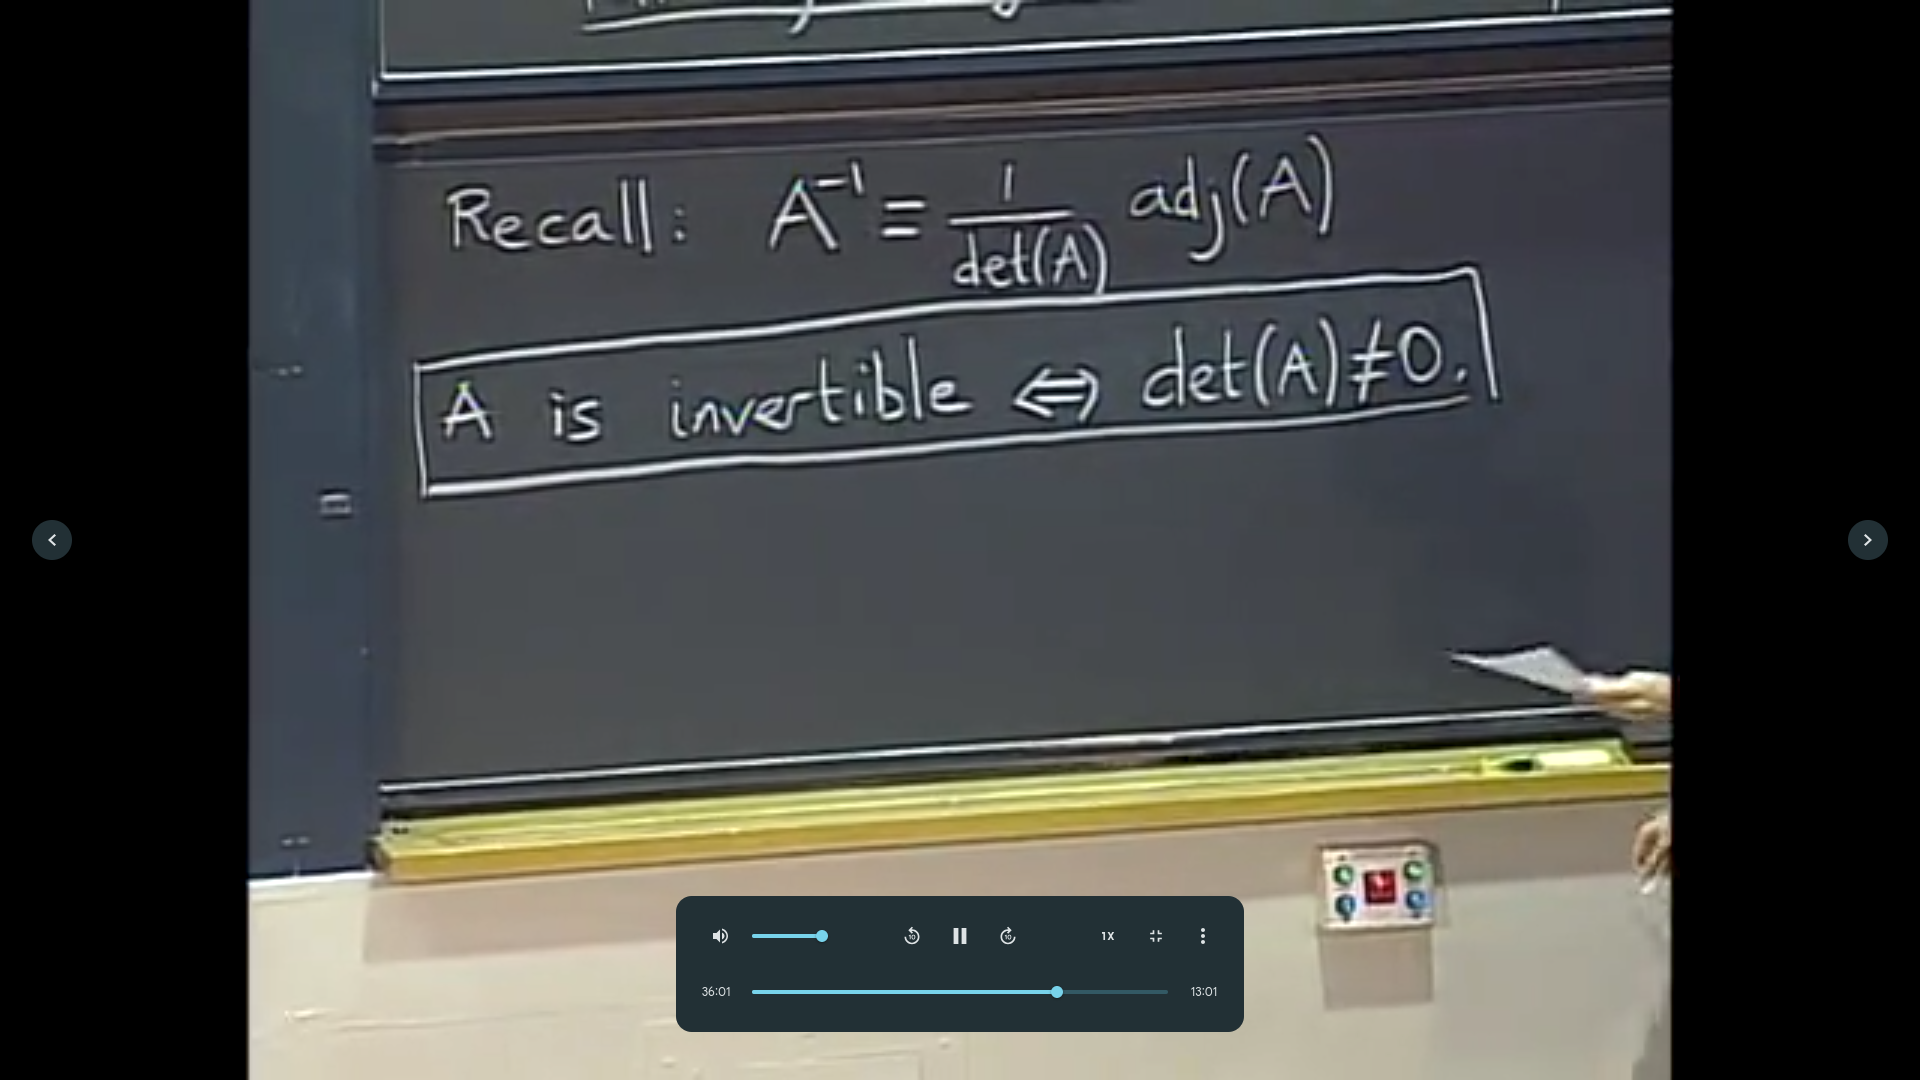 Recall: A⁻¹ = 1/det(A) adj(A)
A is invertible ⇔ det(A)≠0.
10
10
1X
36:01
13:01